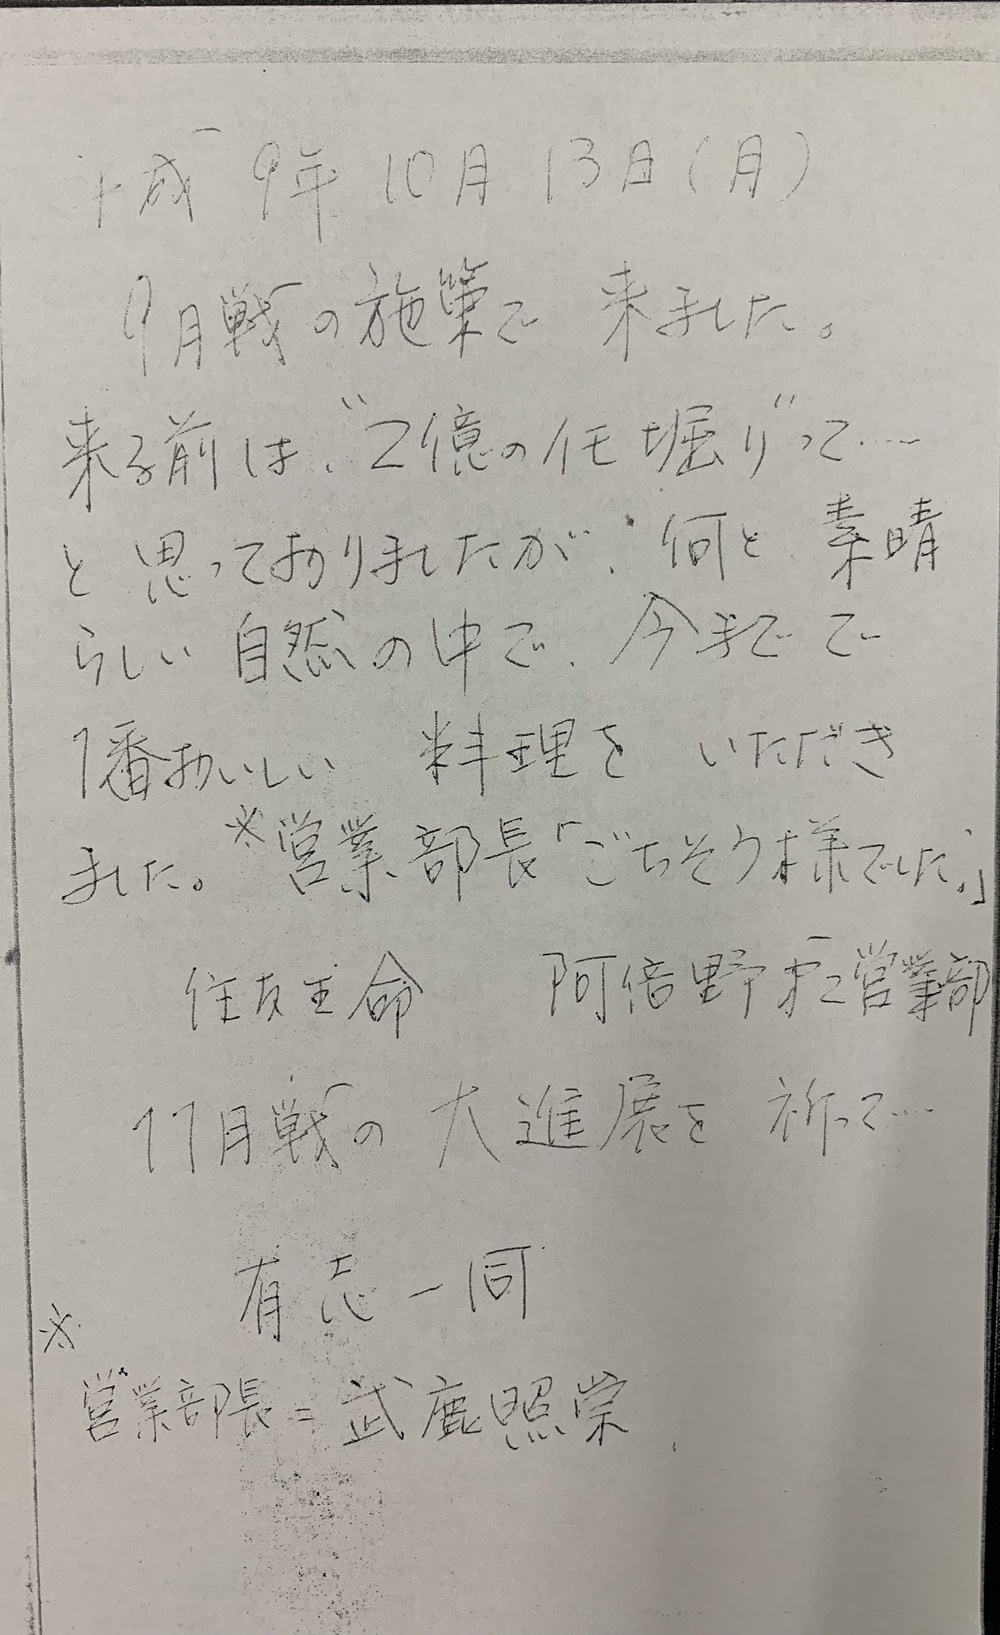 平成 9年 10月 13日(月)
9月戦の施策で 来ました。
来る前は、"2億の化堀り"って……
と思っておりましたが、何と 素晴
らしい 自然の中で、今までで
1番おいしい 料理を いただき
ました。※営業部長「ごちそう様でした。」
住友生命 阿倍野第二営業部
11月戦の 大進展を 祈って…
有志一同
※
営業部長= 武鹿照栄